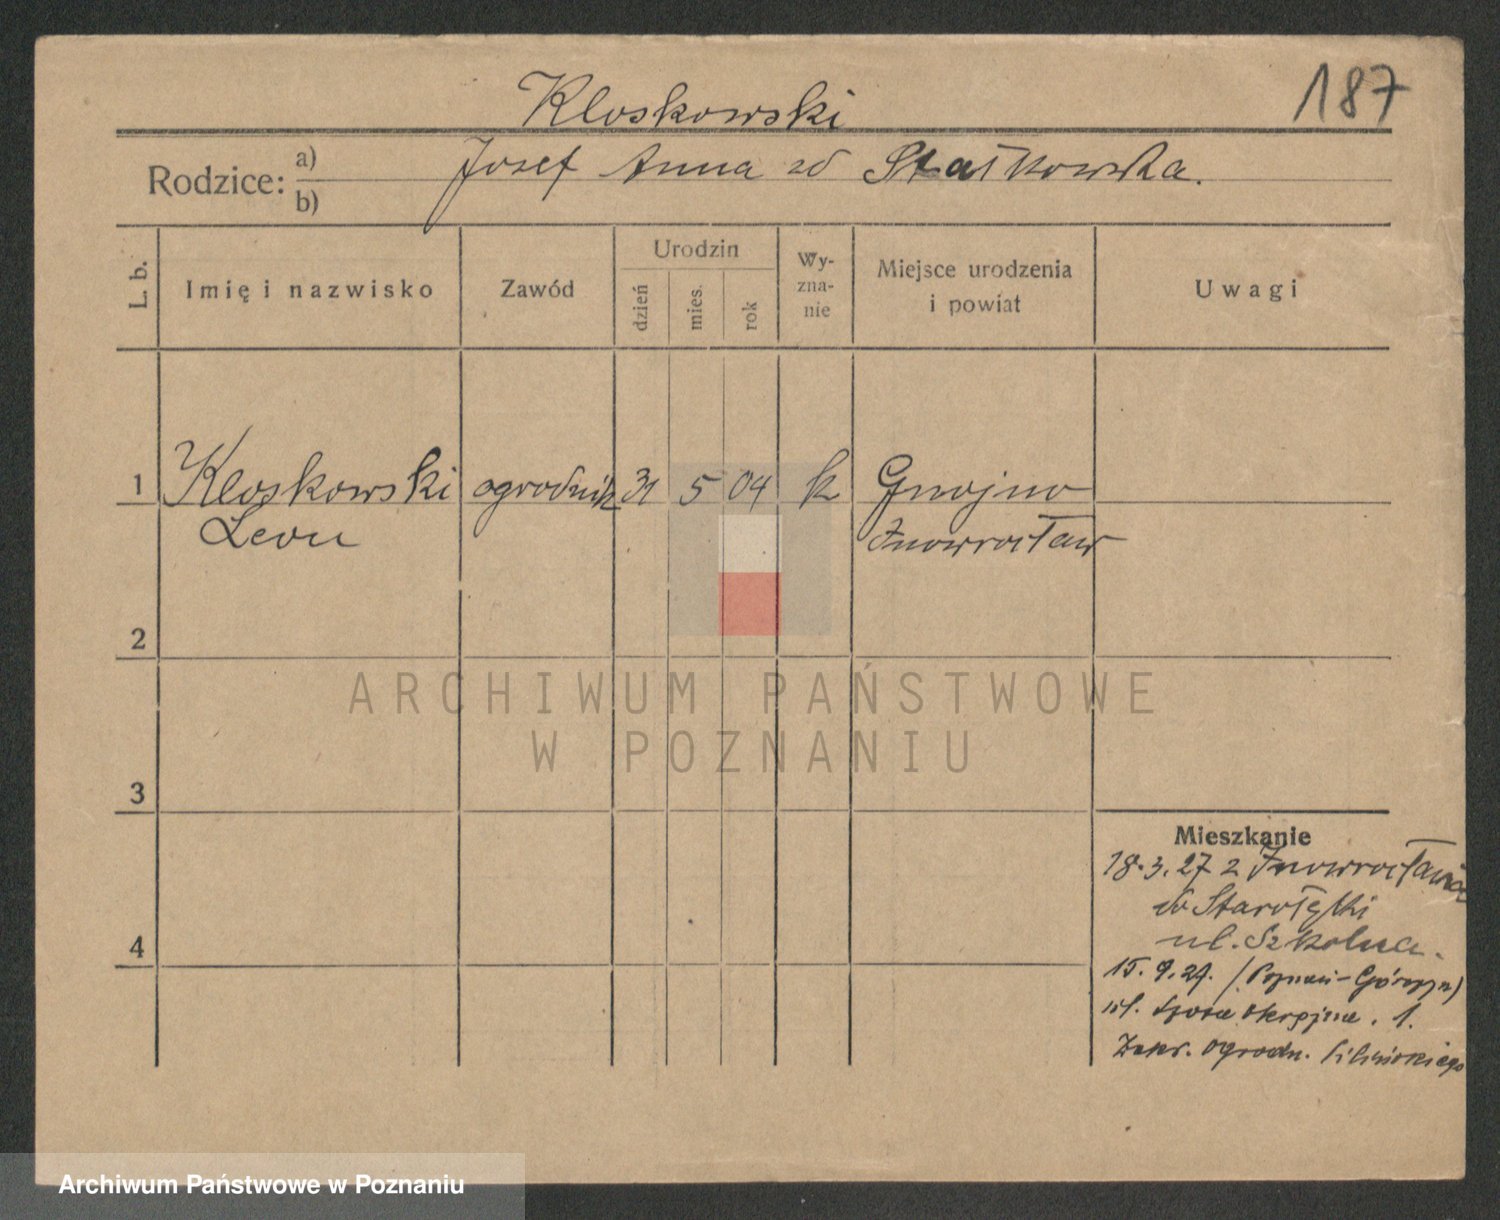 187
Kloskowski
Rodzice: a) Josef Anna zd Statkowska.
b)
L. b. Imię i nazwisko Zawód Urodzin dzień mies. rok Wy-zna-nie Miejsce urodzenia i powiat Uwagi
1 Kloskowski ogrodnik 31 5 04 k Gnojno
Leon Inowrocław
2
ARCHIWUM PAŃSTWOWE
W POZNANIU
3
Mieszkanie
18.3.27 z Inowrocławia
do Starołęki
ul. Szkolna.
4
15.9.27. (Poznań-Górczyn)
ul. okrężna. 1.
ogrodn.
Archiwum Państwowe w Poznaniu